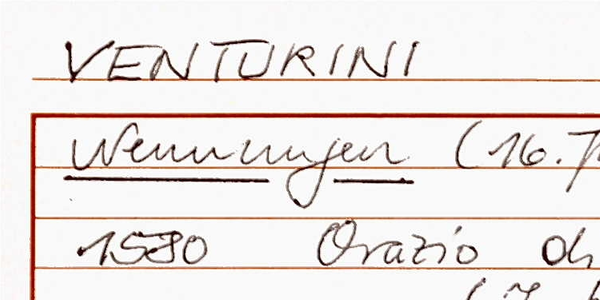 VENTURINI
Nennungen (16.
1580 Orazio